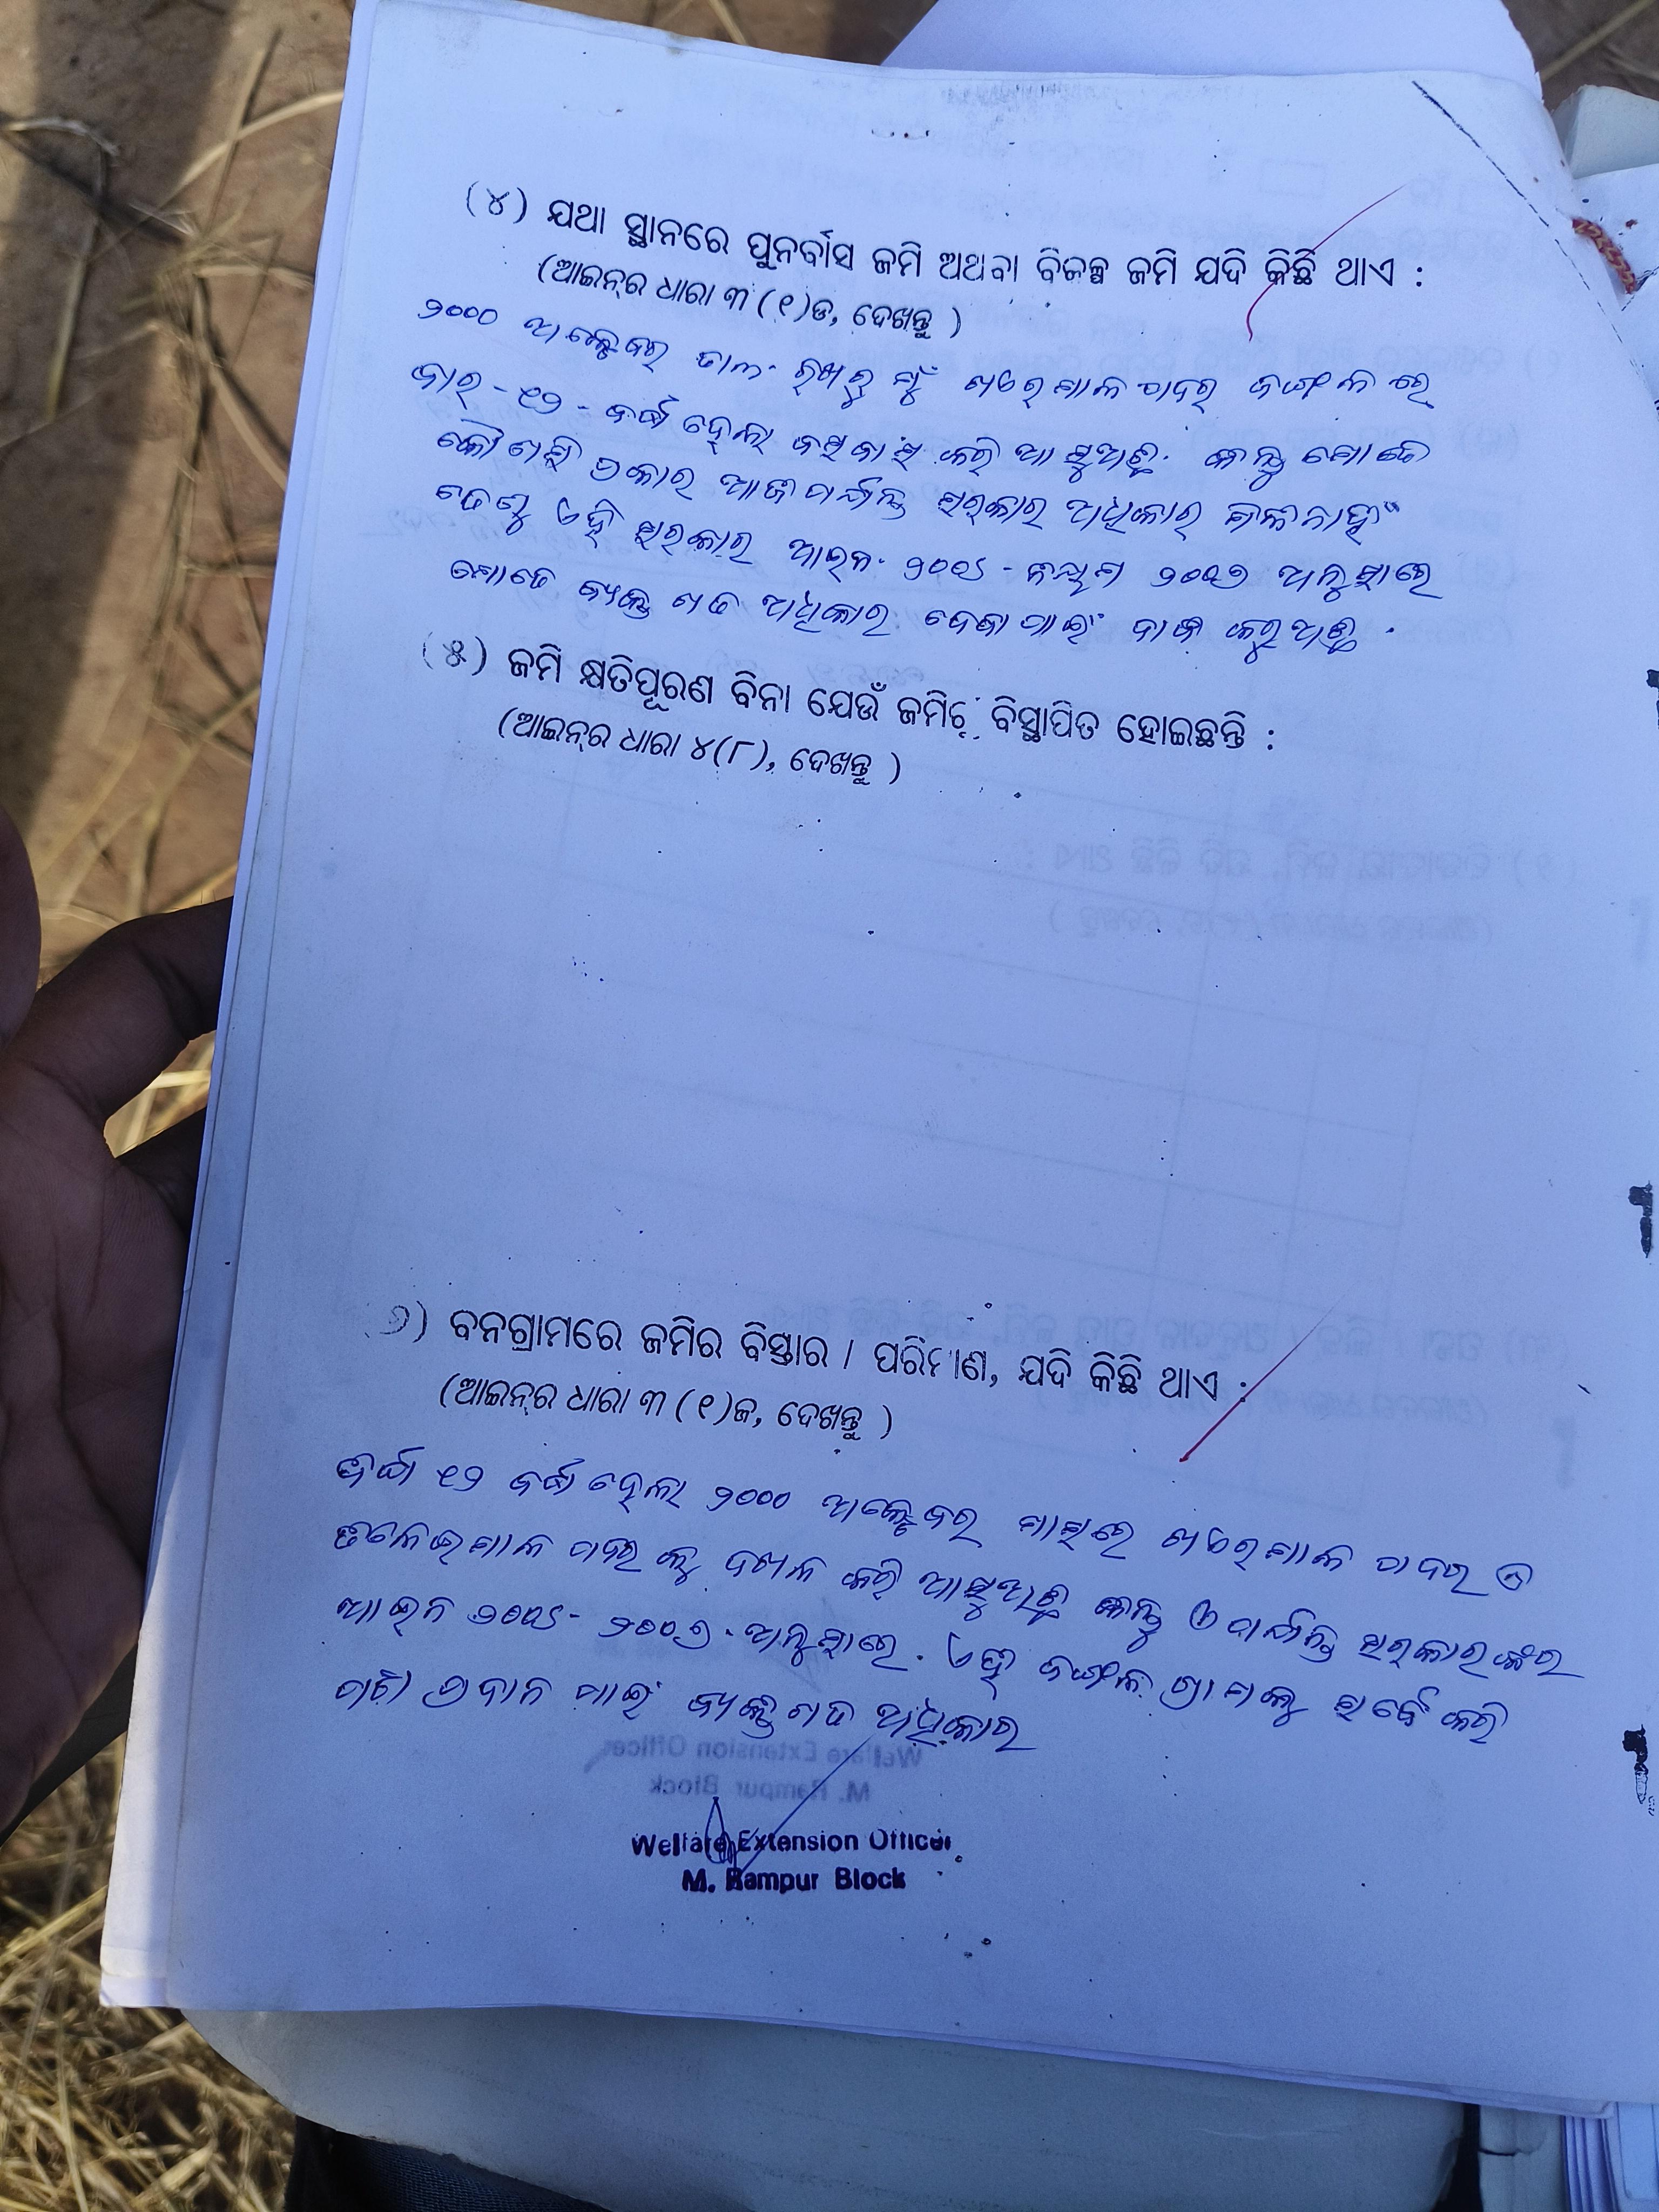 (୪) ଯଥା ସ୍ଥାନରେ ପୁନର୍ବାସ ଜମି ଅଥବା ବିକଳ୍ପ ଜମି ଯଦି କିଛି ଥାଏ :
(ଆଇନ୍‌ର ଧାରା ୩ (୧)ଡ, ଦେଖନ୍ତୁ )
୨୦୦୦ ଅକ୍ଟେବର ମୁଁ ଜଙ୍ଗଲ ରେ
ବାର - ୧୨ - ବର୍ଷ ହେଲା ବସବାସ କରି ଆସୁଅଛି. କିନ୍ତୁ ମୋତେ
କୌଣସି ପ୍ରକାର ଆଜି ପର୍ଯ୍ୟନ୍ତ ସରକାର ଅଧିକାର ନାହିଁ
ତେଣୁ ଏହି ସରକାର ଆଇନ. ୨୦୦୬ - ନିୟମ ୨୦୦୭ ଅନୁସାରେ
ମୋତେ ବ୍ୟକ୍ତି ଗତ ଅଧିକାର ଦେବା ପାଇଁ ଦାବି କରୁଅଛି .
(୫) ଜମି କ୍ଷତିପୂରଣ ବିନା ଯେଉଁ ଜମିରୁ ବିସ୍ଥାପିତ ହୋଇଛନ୍ତି :
(ଆଇନ୍‌ର ଧାରା ୪(୮), ଦେଖନ୍ତୁ )
୬) ବନଗ୍ରାମରେ ଜମିର ବିସ୍ତାର / ପରିମାଣ, ଯଦି କିଛି ଥାଏ :
(ଆଇନ୍‌ର ଧାରା ୩ (୧)ଜ, ଦେଖନ୍ତୁ )
୧୨ ବର୍ଷ ହେଲା ୨୦୦୦ ଅକ୍ଟେବର ମାସରେ ପଦର ଓ
ପଦର କୁ ଦଖଲ କରି ଆସୁଅଛି କିନ୍ତୁ ଏ ପର୍ଯ୍ୟନ୍ତ ସରକାରଙ୍କର
ଆଇନ ୨୦୦୬ - ୨୦୦୭ . ଅନୁସାରେ . ଏହି ଜଙ୍ଗଲ ଗ୍ରାମକୁ ସର୍ଭେ କରି
ପଟ୍ଟା ପ୍ରଦାନ ପାଇଁ ବ୍ୟକ୍ତିଗତ ଅଧିକାର
Welfare Extension Officer
M. Rampur Block